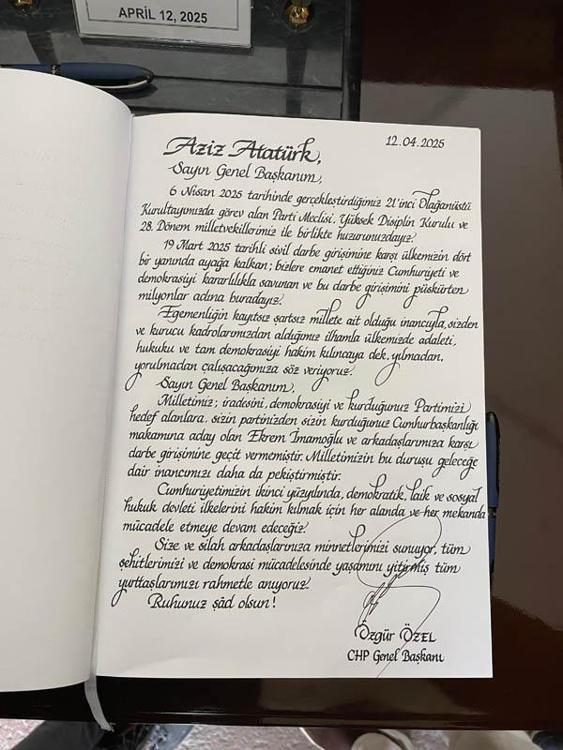 APRİL 12, 2025
12.04.2025
Aziz Atatürk,
Sayın Genel Başkanım,
6 Nisan 2025 tarihinde gerçekleştirdiğimiz 21'inci Olağanüstü
Kurultayımızda görev alan Parti Meclisi, Yüksek Disiplin Kurulu ve
28. Dönem milletvekillerimiz ile birlikte huzurunuzdayız.
19 Mart 2025 tarihli sivil darbe girişimine karşı ülkemizin dört
bir yanında ayağa kalkan; bizlere emanet ettiğiniz Cumhuriyeti ve
demokrasiyi kararlılıkla savunan ve bu darbe girişimini püskürten
milyonlar adına buradayız.
Egemenliğin kayıtsız şartsız millete ait olduğu inancıyla, sizden
ve kurucu kadrolarımızdan aldığımız ilhamla ülkemizde adaleti,
hukuku ve tam demokrasiyi hakim kılıncaya dek, yılmadan,
yorulmadan çalışacağımıza söz veriyoruz.
Sayın Genel Başkanım,
Milletimiz; iradesini, demokrasiyi ve kurduğunuz Partimizi
hedef alanlara, sizin partinizden sizin kurduğunuz Cumhurbaşkanlığı
makamına aday olan Ekrem İmamoğlu ve arkadaşlarımıza karşı
darbe girişimine geçit vermemiştir. Milletimizin bu duruşu geleceğe
dair inancımızı daha da pekiştirmiştir.
Cumhuriyetimizin ikinci yüzyılında, demokratik, laik ve sosyal
hukuk devleti ilkelerini hakim kılmak için her alanda ve her mekanda
mücadele etmeye devam edeceğiz.
Size ve silah arkadaşlarınıza minnetlerimizi sunuyor, tüm
şehitlerimizi ve demokrasi mücadelesinde yaşamını yitirmiş tüm
yurttaşlarımızı rahmetle anıyoruz.
Ruhunuz şâd olsun!
Özgür ÖZEL
CHP Genel Başkanı